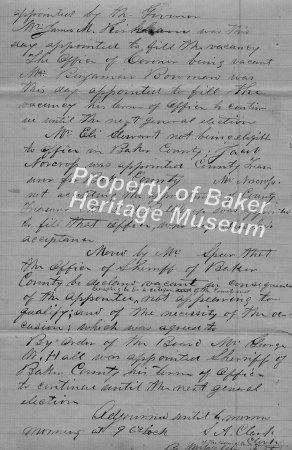 appointed by the Governor
Mr James M. was this
day appointed to fill the vacancy
The Office of Coroner being vacant
Mr Benjamin Bowman was
this day appointed to fill the
vacancy his term of Office to contin
ue until the next general election
Mr Eli Stewart not being eligible
to office in Baker County; Jacob
Norcrop was appointed County Treas
urer County Mr Norcrop
not accepting the County
Treasurer was appointed
to fill that office, his
acceptance
Property of Baker
Heritage Museum
Moved by Mr Spear that
the Office of Sheriff of Baker
County be declared vacant in consequence
of the appointee not appearing to
qualify; and of the necessity of the oc
casion; which was agreed to
By order of the Board Mr George
W. Hall was appointed Sheriff of
Baker County his term of Office
to continue until the next general
election
Adjourned until tomorrow
morning at 9 Oclock S. A. Clarke
Clerk
By